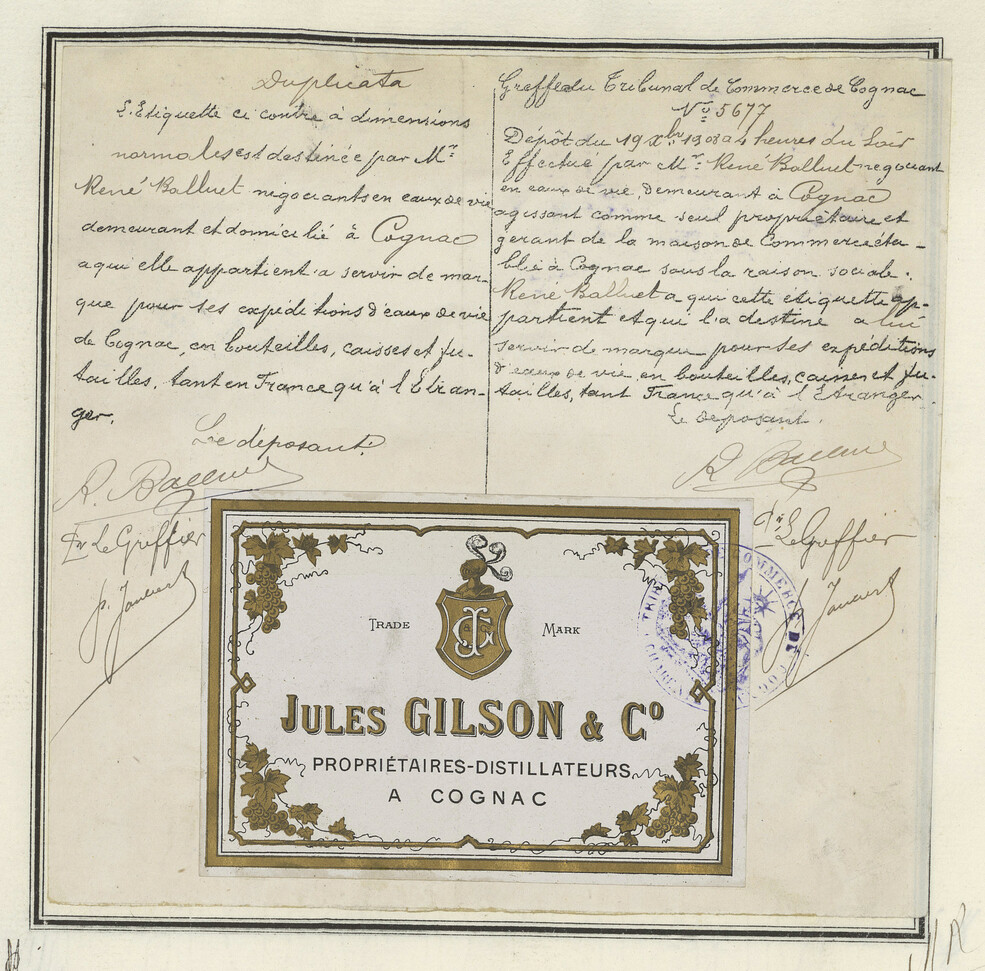 Duplicata
L'Etiquette ci contre à dimensions
normales est destinée par Mr
René Balluet négociants en eaux de vie
demeurant et domicilié à Cognac
a qui elle appartient a servir de mar-
que pour ses expéditions d'eaux de vie
de Cognac, en bouteilles, caisses et fu-
tailles, tant en France qu'à l'Etran-
ger.
Le déposant.
R. Balluet
Pr Le Greffier
Greffe du Tribunal de Commerce de Cognac
No 5677
Dépôt du 19 Xbre 1908 a 4 heures du Soir
Effectué par Mr René Balluet negociant
en eaux de vie, demeurant à Cognac
agissant comme seul propriétaire et
gerant de la maison de Commerce éta-
blie à Cognac sous la raison sociale.
René Balluet a qui cette étiquette ap-
partient et qui l'a destine a lui
servir de marque pour ses expéditions
d'eaux de vie en bouteilles, caisses et fu-
tailles, tant France qu'à l'Etranger.
Le déposant.
R Balluet
Pr Le Greffier
TRADE MARK
JULES GILSON & Co
PROPRIÉTAIRES-DISTILLATEURS
A COGNAC
COMMERCE DE